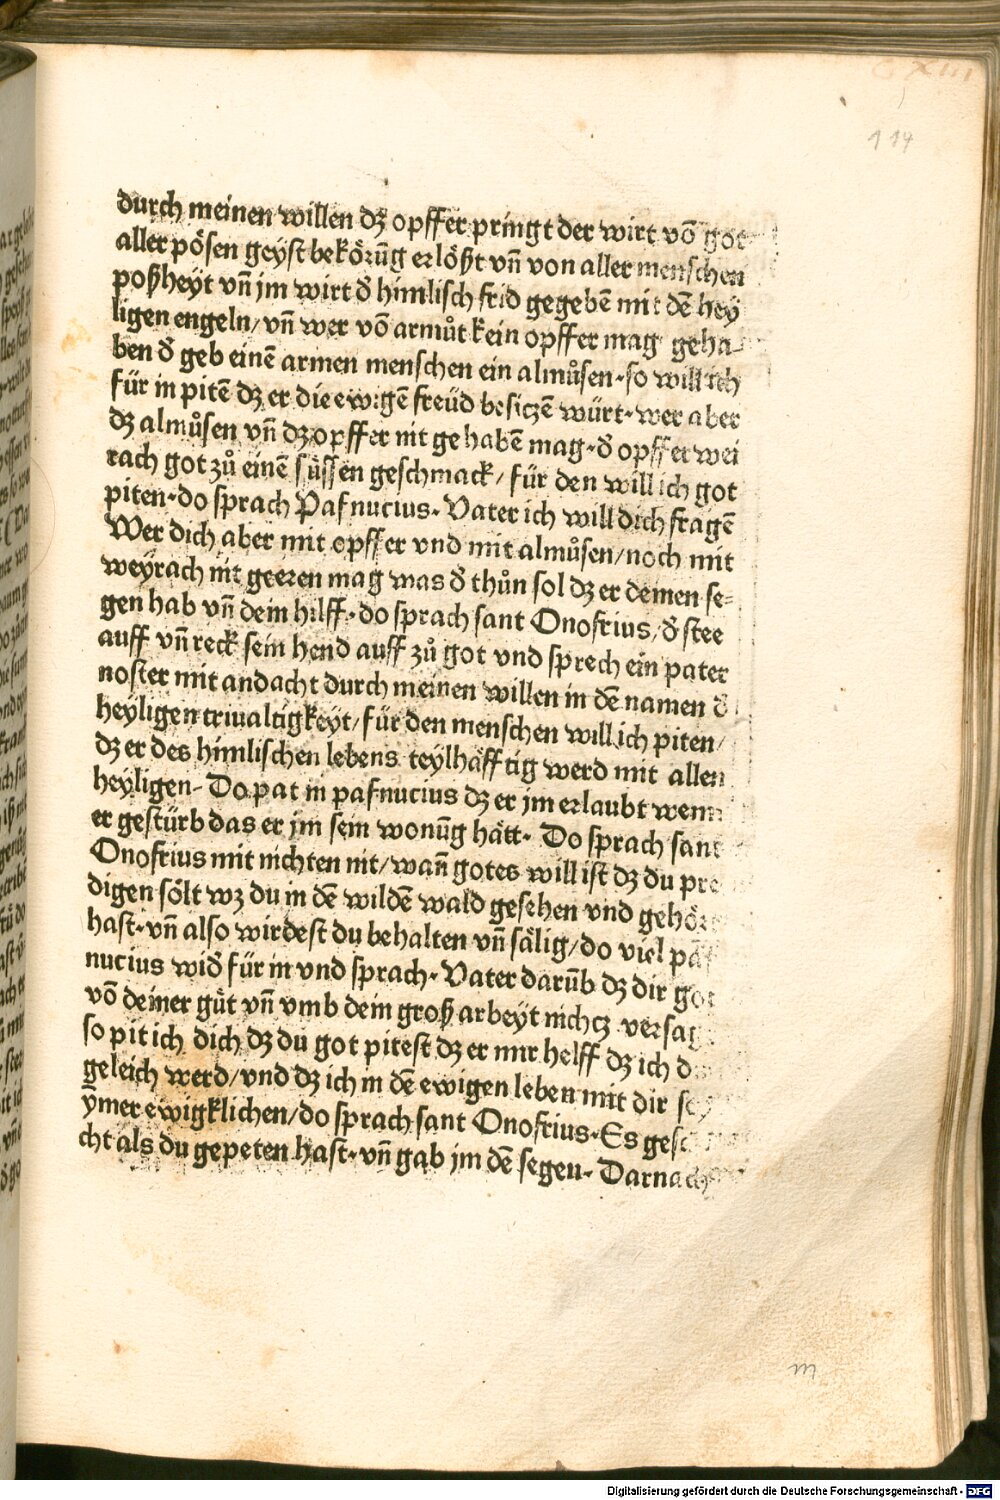 114
durch meinen willen dʒ opffer pringt der wirt võ got
aller pösen geyst bekörũg erlößt vñ von aller menschen
poßheyt vñ jm wirt đ himlisch frid gegebẽ mit dẽ hey
ligen engeln/ vñ wer võ armůt kein opffer mag geha-
ben đ geb einẽ armen menschen ein almůsen·so will ich
für in pitẽ dʒ er die ewigẽ freüd besiczẽ würt·wer aber
dʒ almůsen vñ dʒ opffer nit gehabẽ mag·đ opffer wei
rach got zů einẽ süssen geschmack/ für den will ich got
piten·do sprach Pafnucius· Vater ich will dich fragẽ
Wer dich aber mit opffer vnd mit almůsen/noch mit
weyrach nit geeren mag was đ thůn sol dʒ er deinen se=
gen hab vñ dein hilff·do sprach sant Onofrius/đ stee
auff vñ reck sein hend auff zů got vnd sprech ein pater
noster mit andacht durch meinen willen in dẽ namen đ
heyligen triualtigkeyt/für den menschen will ich piten/
dʒ er des himlischen lebens teylhäfftig werd mit allen
heyligen· Do pat in pafnucius dʒ er jm erlaubt wenn
er gestürb das er jm sein wonũg hätt· Do sprach sant
Onofrius mit nichten nit/wañ gotes will ist dʒ du pre
digen sölt wʒ du in dẽ wildẽ wald gesehen vnd gehör
hast·vñ also wirdest du behalten vñ sälig/do viel paf
nucius wiđ für in vnd sprach· Vater darũb dʒ dir got
võ deiner güt vñ vmb dein groß arbeyt nichcz versag
so pit ich dich dʒ du got pitest dʒ er mir helff dʒ ich d
geleich werd/vnd dʒ ich in dẽ ewigen leben mit dir sey
ÿmer ewigklichen/do sprach sant Onofrius·Es gesc
cht als du gepeten hast·vñ gab jm dẽ segen· Darnach
m
Digitalisierung gefördert durch die Deutsche Forschungsgemeinschaft - DFG